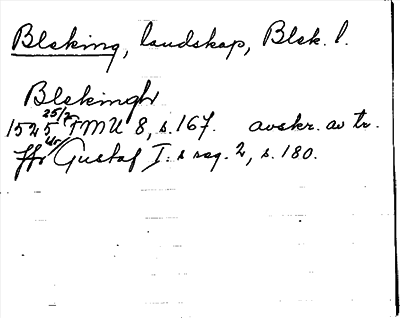 Bleking, landskap, Blek. l.
Blekingh
1525 25/2 FMU 8, s. 167. avskr. av tr.
Ur Gustaf I:s reg. 2, s. 180.